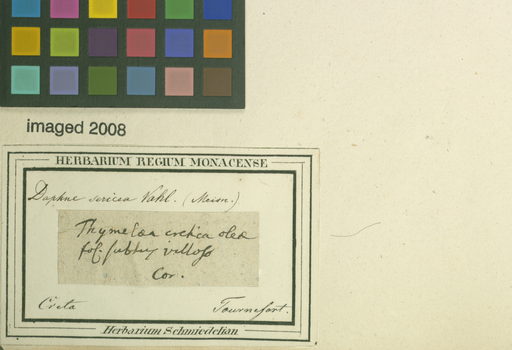 imaged 2008
HERBARIUM REGIUM MONACENSE
Daphne sericea Vahl. (Meisn.)
Thymelæa cretica oleæ
fol. subtus villoso
Cor.
Creta Tournefort.
Herbarium Schmiedelian